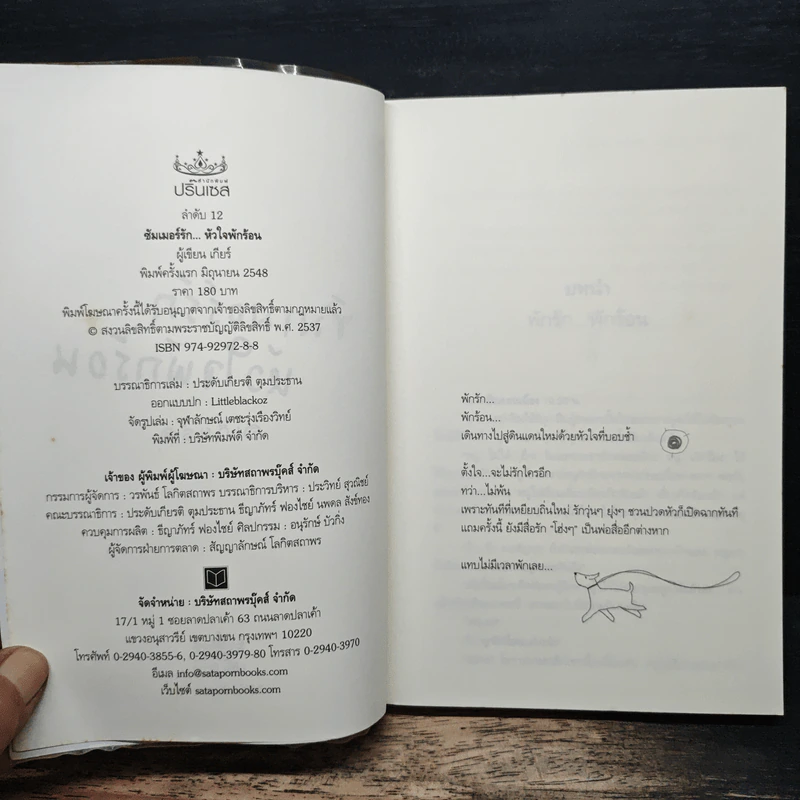 สำนักพิมพ์
ปริ๊นเซส
ลำดับ 12
ซัมเมอร์รัก... หัวใจพักร้อน
ผู้เขียน เกียร์
พิมพ์ครั้งแรก มิถุนายน 2548
ราคา 180 บาท
พิมพ์โฆษณาครั้งนี้ได้รับอนุญาตจากเจ้าของลิขสิทธิ์ตามกฎหมายแล้ว
© สงวนลิขสิทธิ์ตามพระราชบัญญัติลิขสิทธิ์ พ.ศ. 2537
ISBN 974-92972-8-8
บรรณาธิการเล่ม : ประดับเกียรติ ตุมประธาน
ออกแบบปก : Littleblackoz
จัดรูปเล่ม : จุฬาลักษณ์ เตชะรุ่งเรืองวิทย์
พิมพ์ที่ : บริษัทพิมพ์ดี จำกัด
เจ้าของ ผู้พิมพ์ผู้โฆษณา : บริษัทสถาพรบุ๊คส์ จำกัด
กรรมการผู้จัดการ : วรพันธ์ โลกิตสถาพร บรรณาธิการบริหาร : ประวิทย์ สุวณิชย์
คณะบรรณาธิการ : ประดับเกียรติ ตุมประธาน ธีญาภัทร์ ฟองไชย์ นพดล สังข์ทอง
ควบคุมการผลิต : ธีญาภัทร์ ฟองไชย์ ศิลปกรรม : อนุรักษ์ บัวกิ่ง
ผู้จัดการฝ่ายการตลาด : สัญญาลักษณ์ โลกิตสถาพร
จัดจำหน่าย : บริษัทสถาพรบุ๊คส์ จำกัด
17/1 หมู่ 1 ซอยลาดปลาเค้า 63 ถนนลาดปลาเค้า
แขวงอนุสาวรีย์ เขตบางเขน กรุงเทพฯ 10220
โทรศัพท์ 0-2940-3855-6, 0-2940-3979-80 โทรสาร 0-2940-3970
อีเมล info@satapornbooks.com
เว็บไซต์ satapornbooks.com
พักรัก...
พักร้อน...
เดินทางไปสู่ดินแดนใหม่ด้วยหัวใจที่บอบช้ำ
ตั้งใจ...จะไม่รักใครอีก
ทว่า...ไม่พ้น
เพราะทันทีที่เหยียบถิ่นใหม่ รักวุ่นๆ ยุ่งๆ ชวนปวดหัวก็เปิดฉากทันที
แถมครั้งนี้ ยังมีสื่อรัก "โฮ่งๆ" เป็นพ่อสื่ออีกต่างหาก
แทบไม่มีเวลาพักเลย...